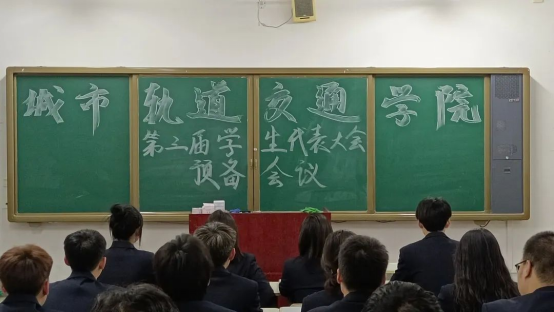 城市轨道交通学院
第三届学生代表大会
预备会议